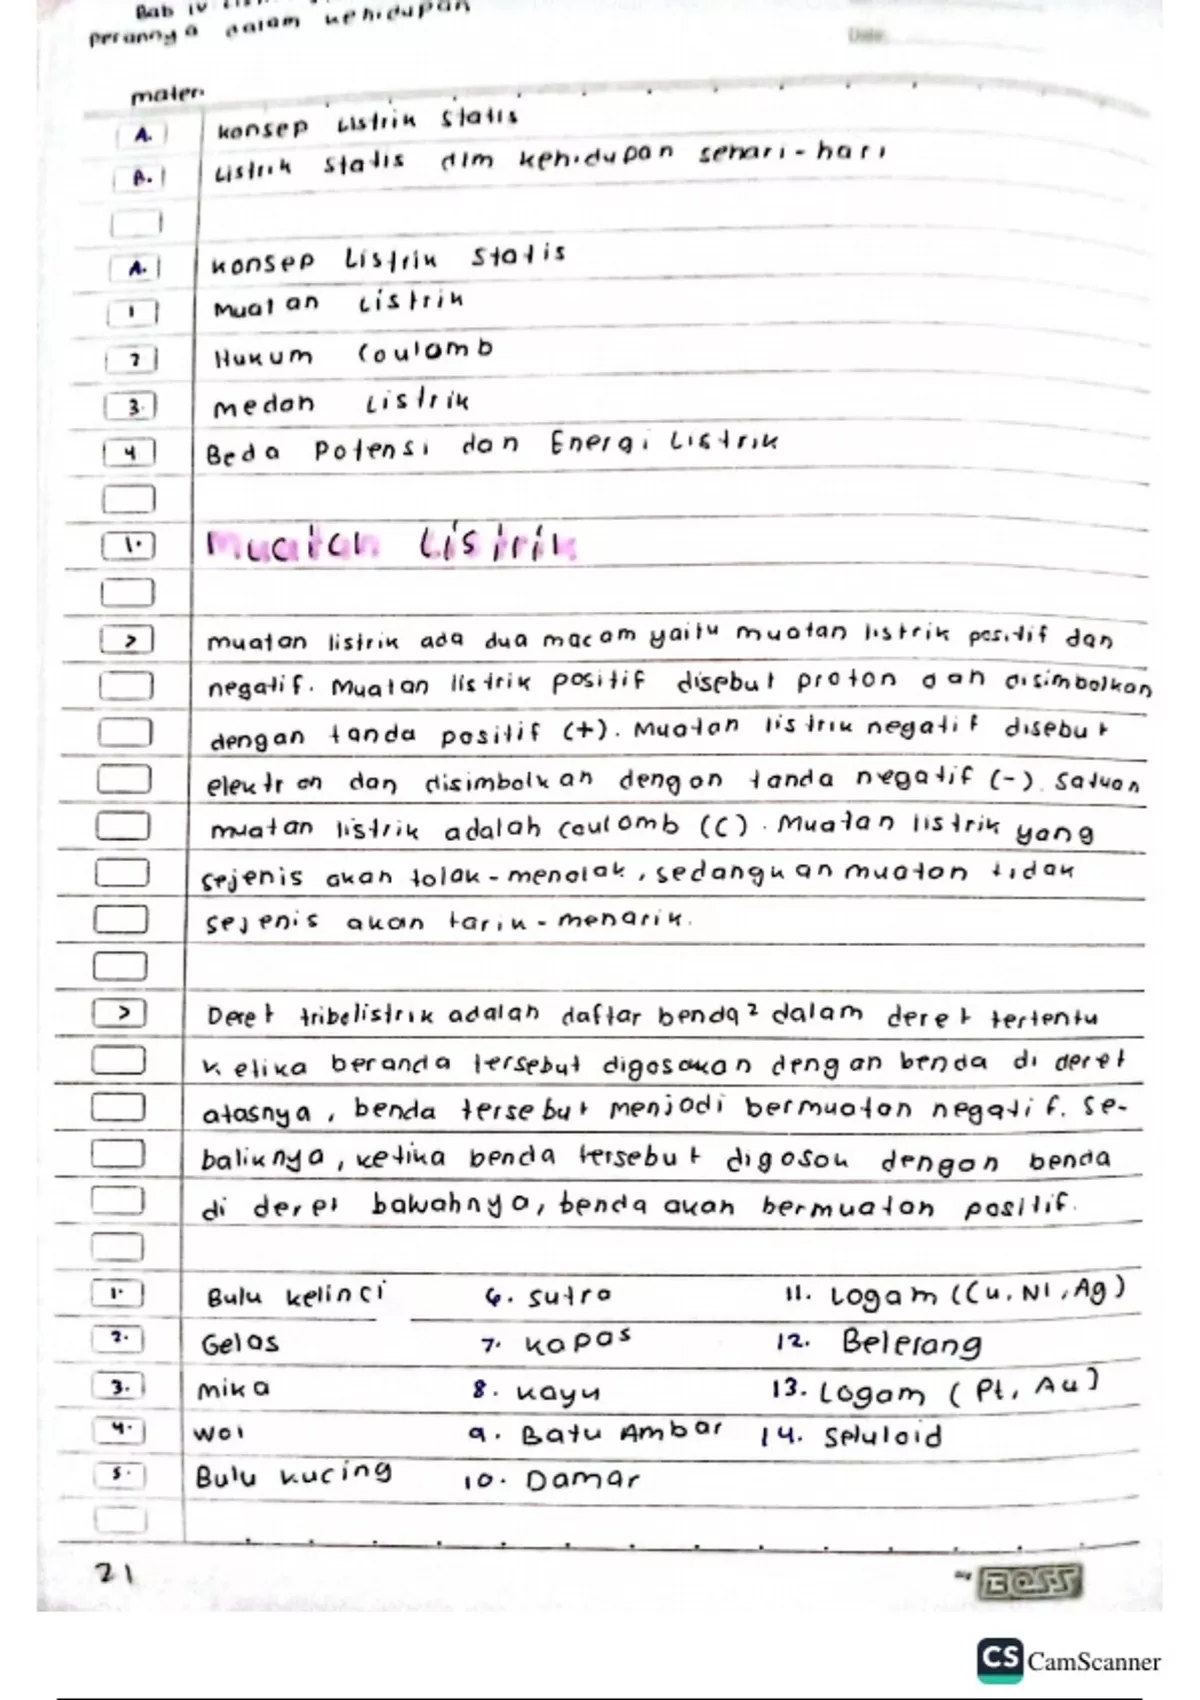 Bab IV
peranny a dalam kehidupan
Date
materi
A. konsep Listrik Statis
B. Listrik Statis dlm kehidupan sehari-hari
A. konsep Listrik Statis
1 Muatan Listrik
2 Hukum Coulomb
3. medan Listrik
4 Beda Potensi dan Energi Listrik
1. Muatan Listrik
> muatan listrik ada dua macam yaitu muatan listrik positif dan
negatif. Muatan listrik positif disebut proton dan disimbolkan
dengan tanda positif (+). Muatan listrik negatif disebut
elektron dan disimbolkan dengan tanda negatif (-). Satuan
muatan listrik adalah coulomb (C). Muatan listrik yang
sejenis akan tolak-menolak, sedangkan muatan tidak
sejenis akan tarik-menarik.
> Deret tribolistrik adalah daftar benda² dalam deret tertentu
ketika beranda tersebut digosokan dengan benda di deret
atasnya, benda tersebut menjadi bermuatan negatif. Se-
baliknya, ketika benda tersebut digosok dengan benda
di deret bawahnya, benda akan bermuatan positif.
1. Bulu kelinci 6. sutra 11. Logam (Cu, NI, Ag)
2. Gelas 7. kapas 12. Belerang
3. mika 8. kayu 13. Logam (Pt, Au)
4. Wol 9. Batu Ambar 14. Seluloid
5. Bulu kucing 10. Damar
21
BOSS
CS CamScanner